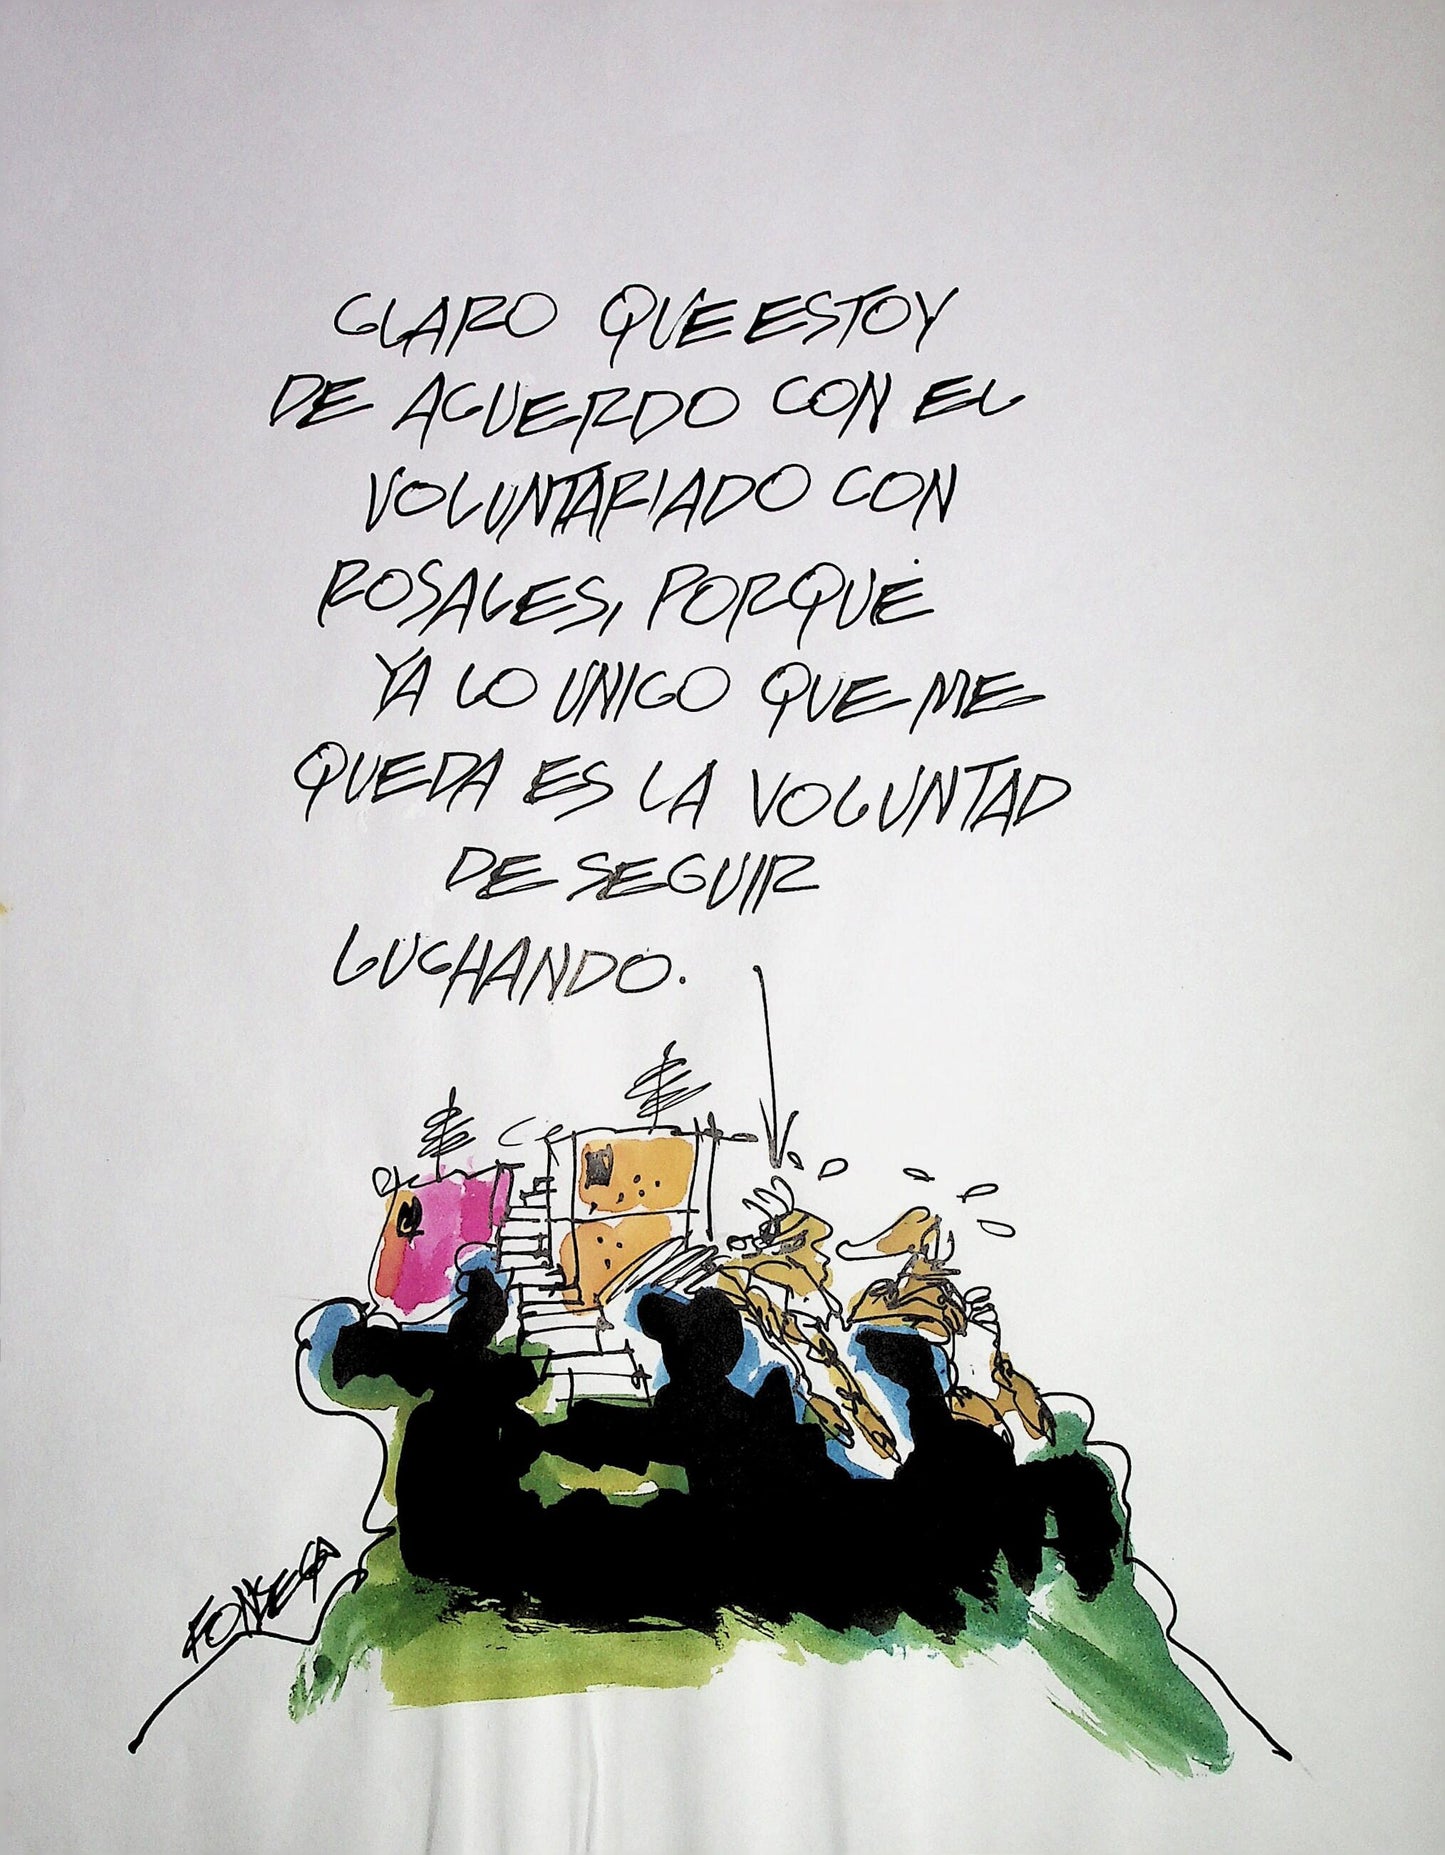 CLARO QUE ESTOY
DE ACUERDO CON EL
VOLUNTARIADO CON
ROSALES, PORQUE
YA LO UNICO QUE ME
QUEDA ES LA VOLUNTAD
DE SEGUIR
LUCHANDO.
FONSECA